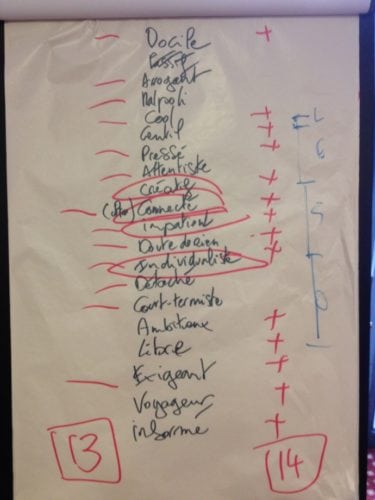 — Docile +
Passif
— Arrogant
— Malpoli
— Cool +
Gentil +
— Pressé +
— Attentiste
Créatif +
— (ultra) Connecté +
— impatient +
— Doute de rien +
— individualiste +
— Détaché
— Court-termiste
Ambitieux +
Libre +
— Exigeant +
Voyageur +
informé +
13 14